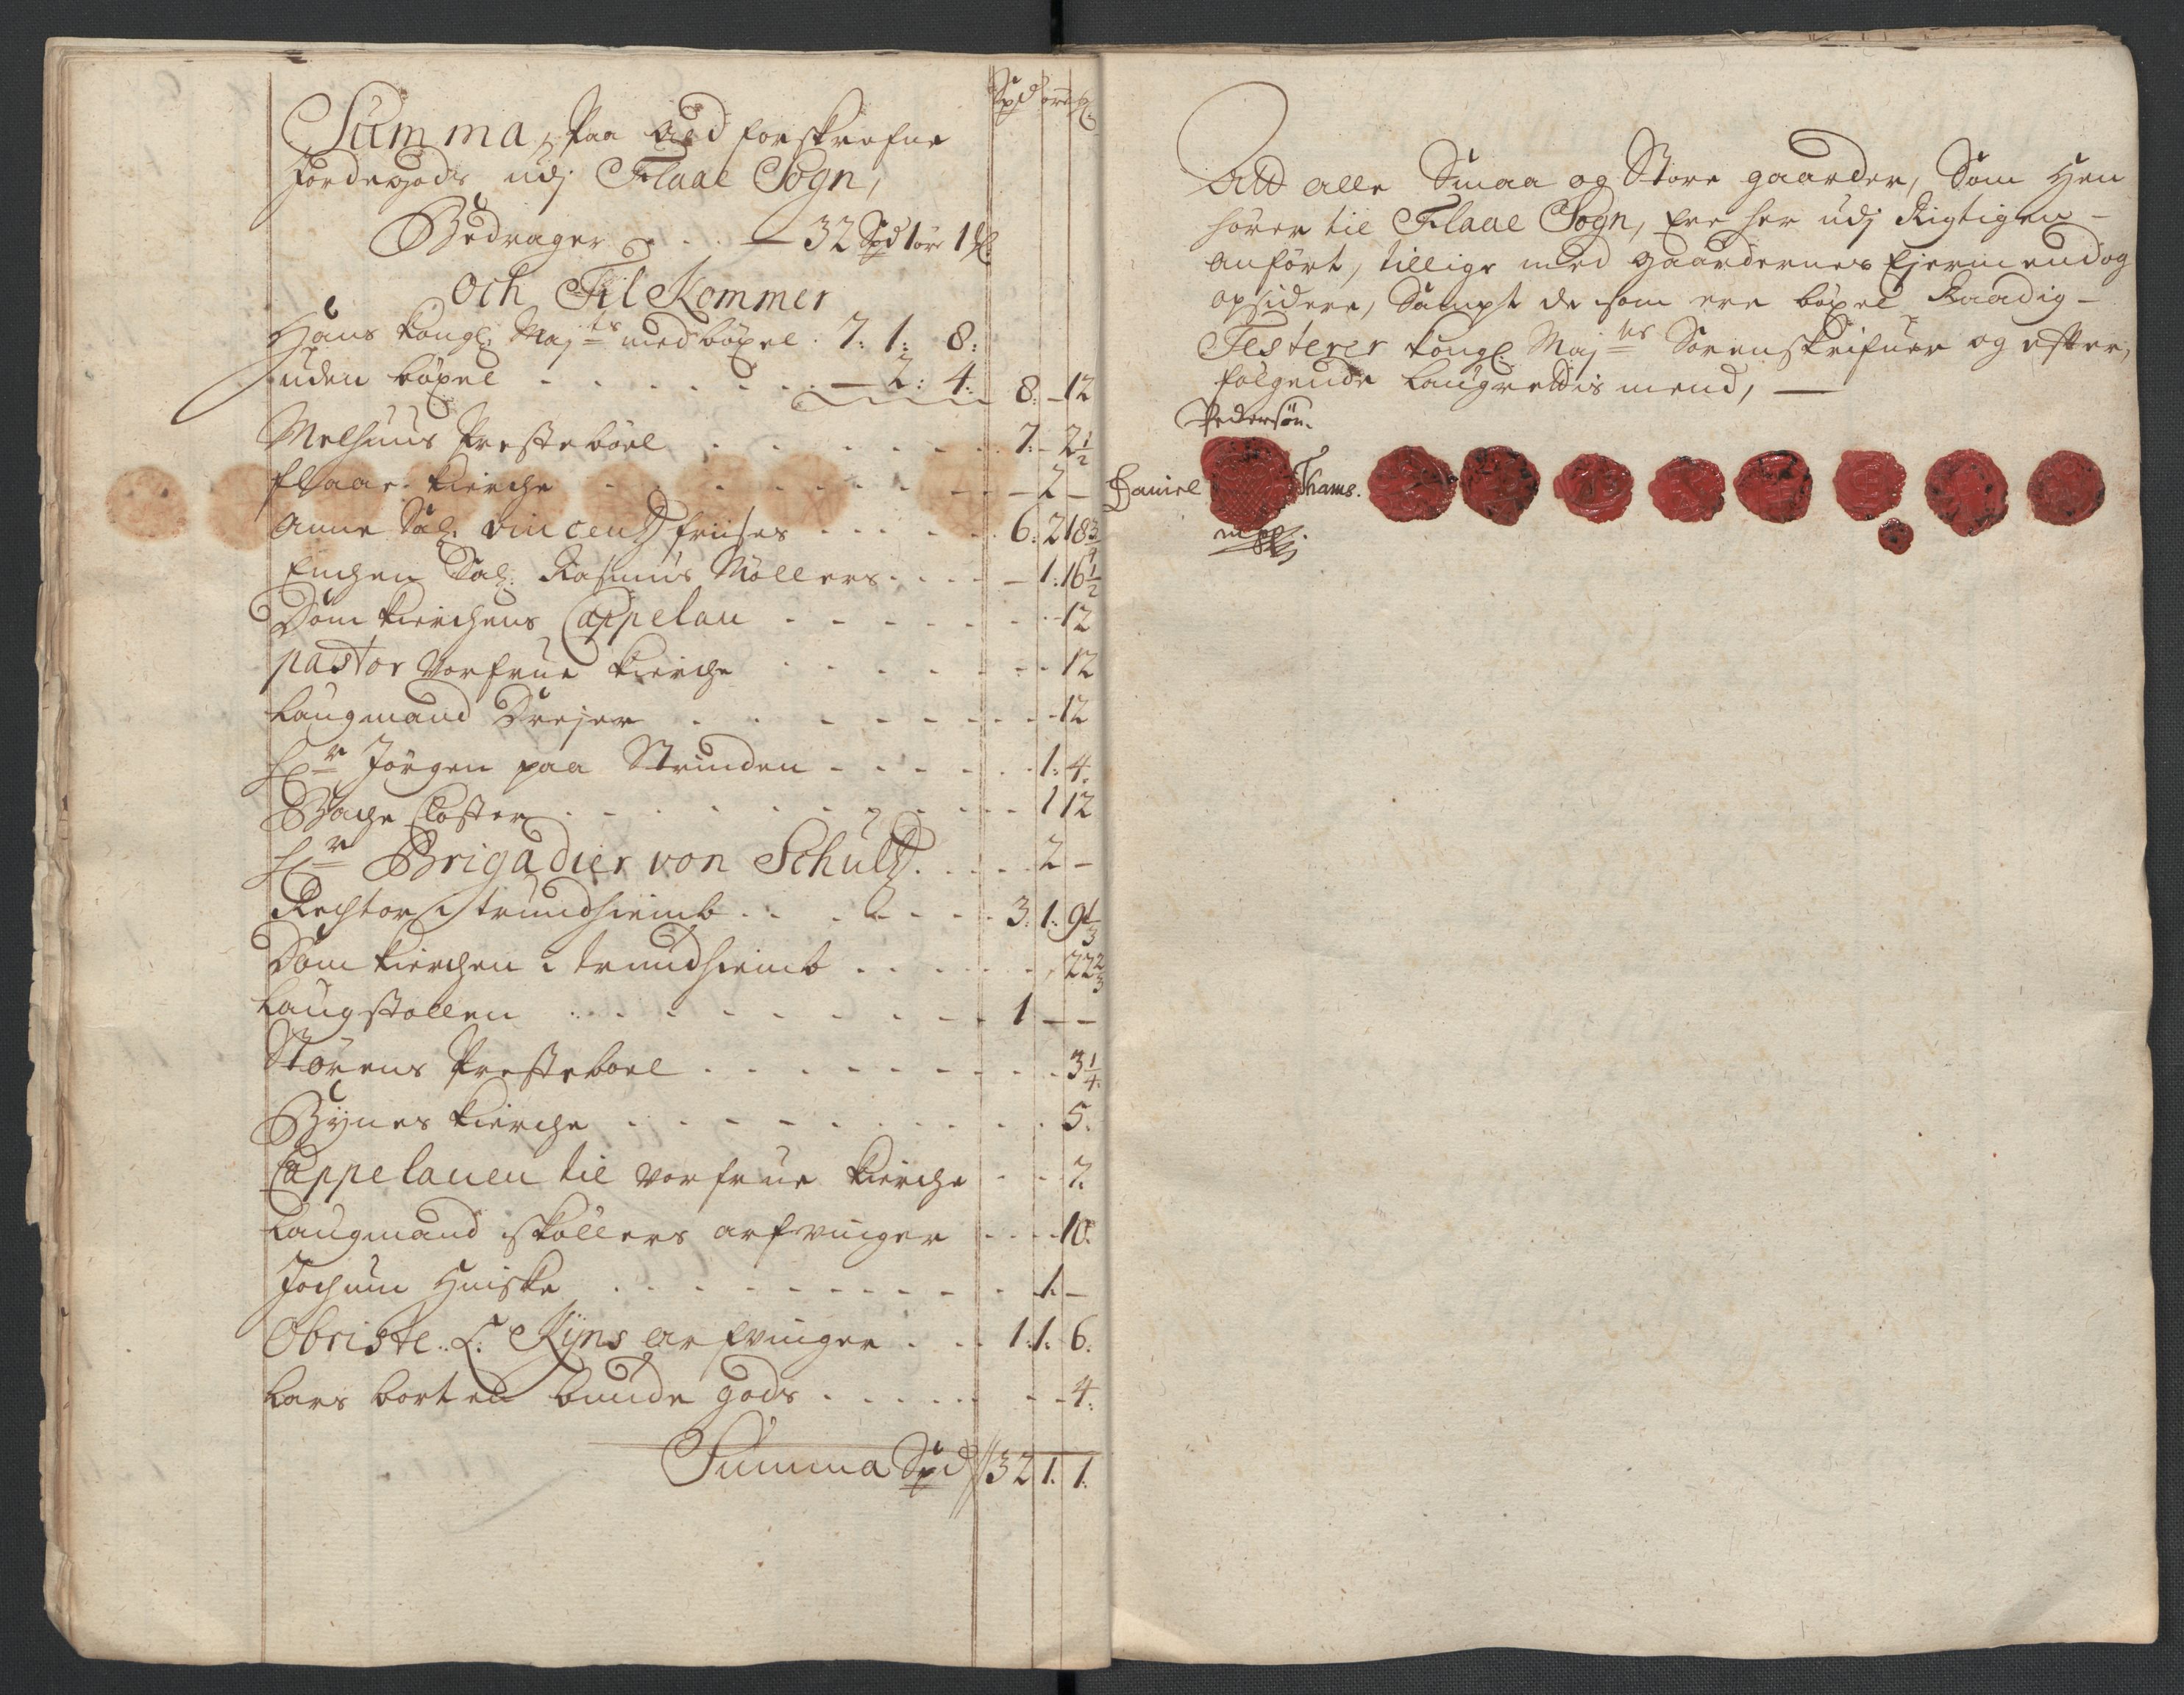 Spd ører ml
Summa, Paa alt forskrefne
Jordegods udj Flaae Sogn,
Bedrager . . . — 32 Spd 1 ör 1 ml
Och Til Kommer
Hans Kongl: Majts med böxel . 7: 1: 8:
uden böxel . . . . . . . — 2: 4: 8: — 12
Melhuus Prestebôel . . . . . . . 7: — 2½
flaae Kierche . . . . . . . . — 2 —
Anne Sal: Vincentz friises . . . . . 6: 2 18¾
Enchen Sal: Rasmus Möllers . . . . — 1: 16½
Dom Kierchens Cappelan . . . . . . . 12
pastor Vorfrue Kierche . . . . . . . 12
Laugmand Drejer . . . . . . . . 12
Hr Jörgen paa Strinden . . . . . . 1: 4.
Bache Closter . . . . . . . . . 1 12
Hr Brigadier von Schultz . . . . . 2 —
Rechtor i trundhiemb . . . . . . 3: 1: 9⅓
Dom Kierchen i trundhiemb . . . . . . 22⅔
Laugstollen . . . . . . . . . 1 — —
Störens Presteboel . . . . . . . . . 3¼
Bynes Kierche . . . . . . . . . 5.
Cappelanen til Vorfrue Kierche . . . 7.
Laugmand skøllers arfvinger . . . . 10.
Jochum Huiske . . . . . . . . . 1. —
Obriste. L. Kyns arfvinger . . . 1: 1: 6.
Lars borten bunde gods . . . . . . . 4.
Summa Spd 32 1. 1.
Att alle Smaa og Store gaarder, Som Hen
hörer til Flaae Sogn, Ere her udj Rigtigen —
anfört, tillige med gaardernes Ejermend og
opsidere, Sampt de som ere böxel Raadig —
Testerer Kongl: Majts Sorenskrifuer og efter,
fölgende Laugrettis mend, —
Pedersön.
Daniel Thams.
mpp.